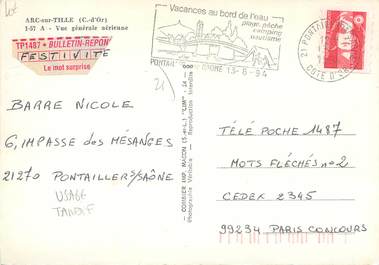 Lot
ARC-sur-TILLE (C.-d'Or)
1-57 A - Vue générale aérienne
TP1487 • BULLETIN-REPON
FESTIVITE
Le mot surprise
Vacances au bord de l'eau
plage, pêche
camping
nautisme
PONTAILLER SUR SAONE 13-6-94
21 PONTAILLER
COTE D'OR
BARRE NICOLE
6, IMPASSE des MÉSANGES
21270 PONTAILLER S/SAÔNE
USAGE
TARDIF
21
COMBIER IMP. MACON (S.-et-L.) "CIM"
Photographie Véritable - Reproduction Interdite
TÉLÉ POCHE 1487
MOTS FLÉCHÉS no2
CEDEX 2345
99234 PARIS CONCOURS